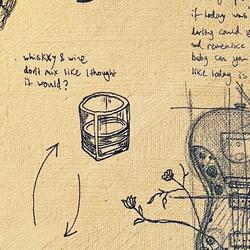 whiskky & wine
don't mix like I thought
it would?
if today was
darling could
and reminisce
baby can you
like today is